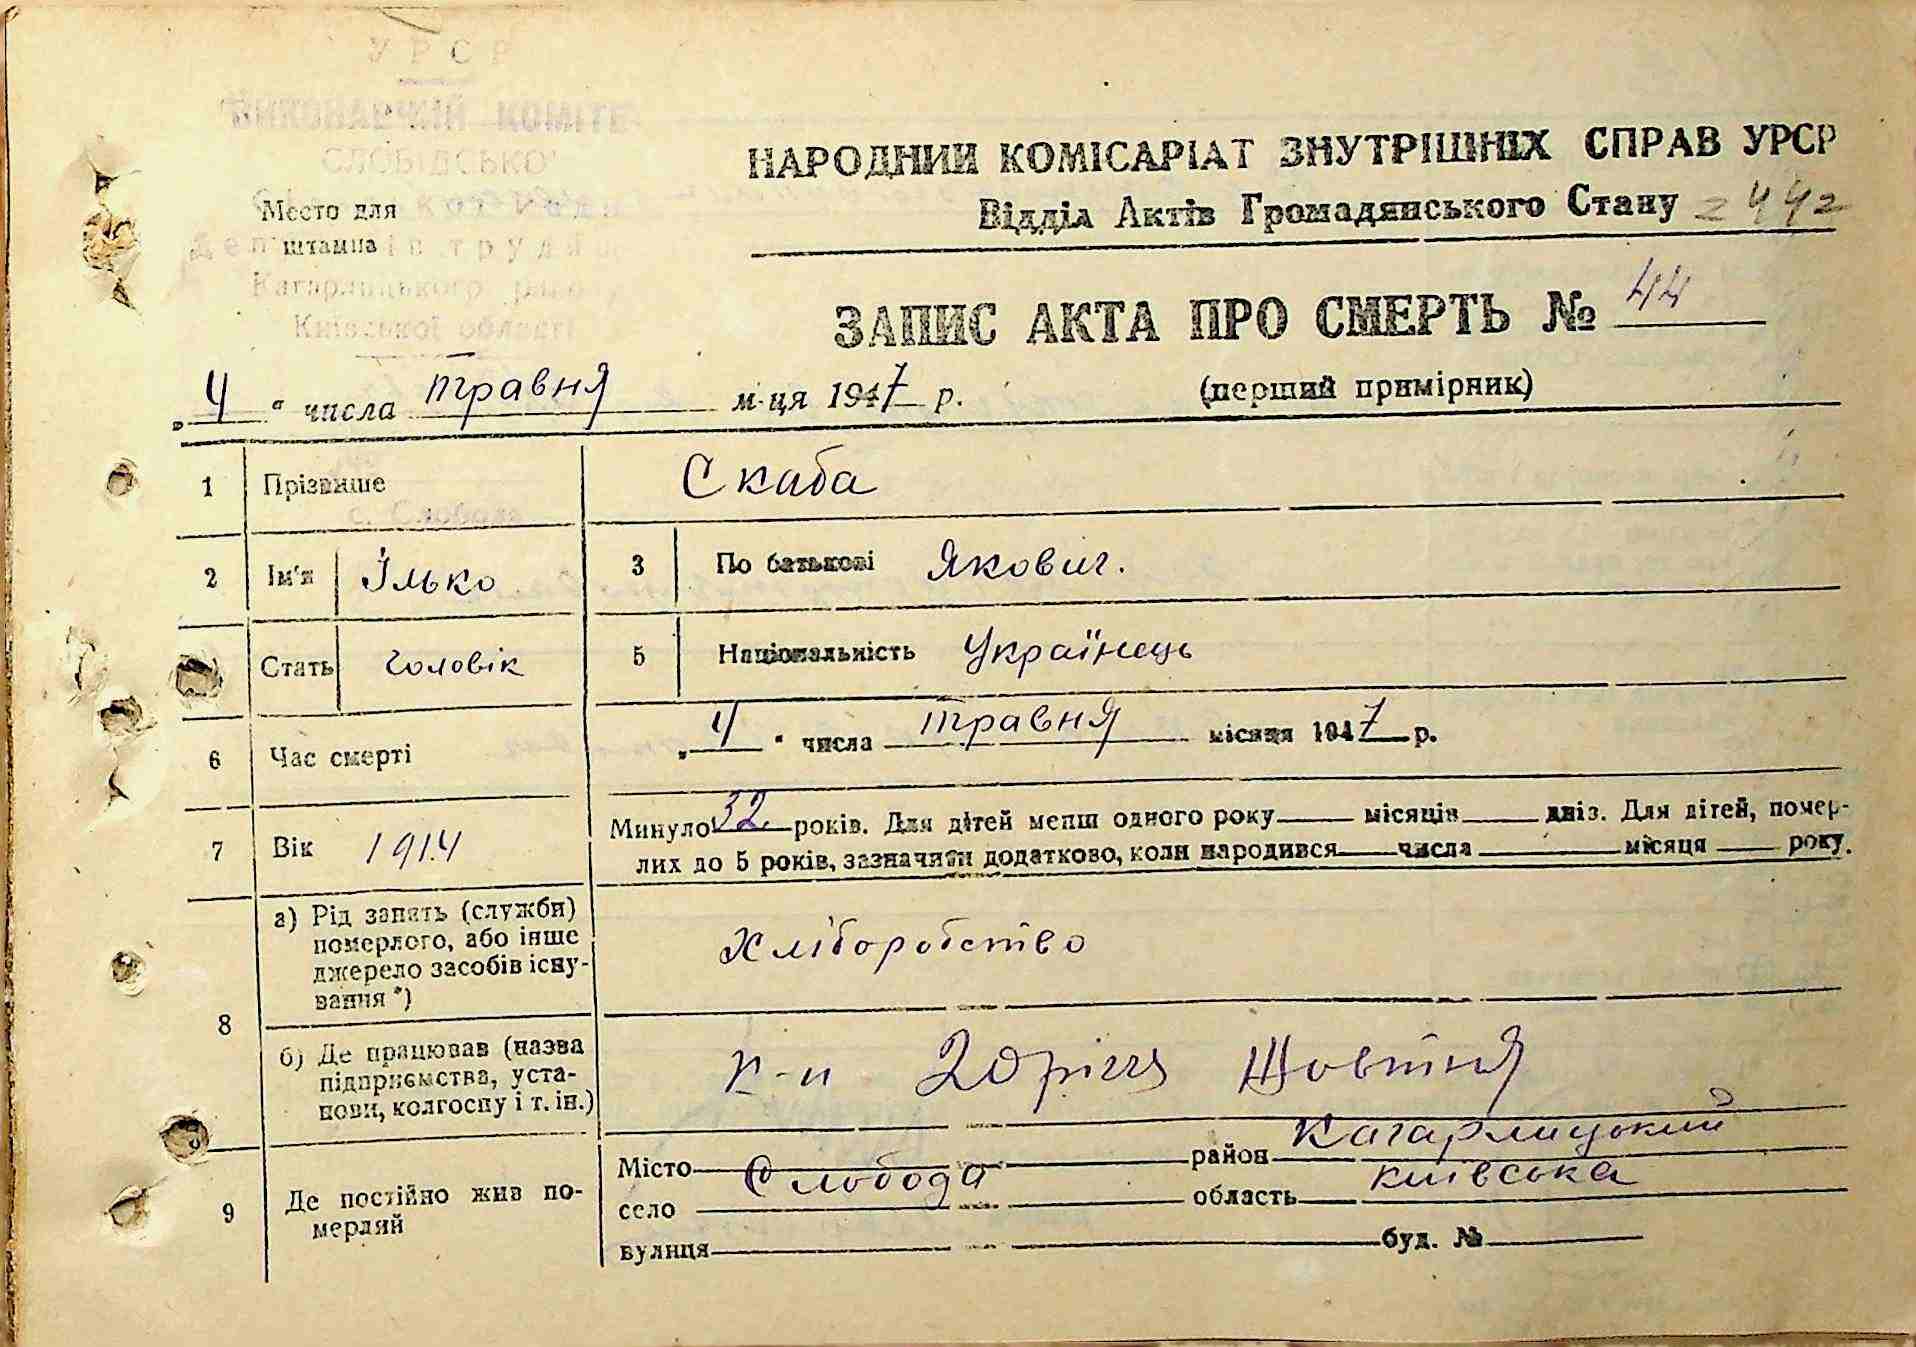 УРСР
ВИКОНАВЧИЙ КОМІТЕ
СЛОБІДСЬКО
Место для
штампа
Кагарлицького
Київської області
НАРОДНИЙ КОМІСАРІАТ ЗНУТРІШНІХ СПРАВ УРСР
Відділ Актів Громадянського Стану 2442
ЗАПИС АКТА ПРО СМЕРТЬ № 44
„4“ числа травня м-ця 1947 р. (перший примірник)
1 Прізвище Скаба
с. Слобода
2 Ім'я Ілько 3 По батькові Якович.
Стать Чоловік 5 Національність Українець
6 Час смерті „4“ числа травня місяця 1947 р.
7 Вік 1914 Минуло 32 років. Для дітей менш одного року місяців днів. Для дітей, помер-
лих до 5 років, зазначити додатково, коли народився числа місяця року.
8 а) Рід занять (служби)
померлого, або інше
джерело засобів існу-
вання *)
Хліборобство
б) Де працював (назва
підприємства, уста-
нови, колгоспу і т. ін.)
к-п 20 річчя Жовтня
9 Де постійно жив по-
мерлий
Місто район Кагарлицький
село Слобода область київська
вулиця буд. №